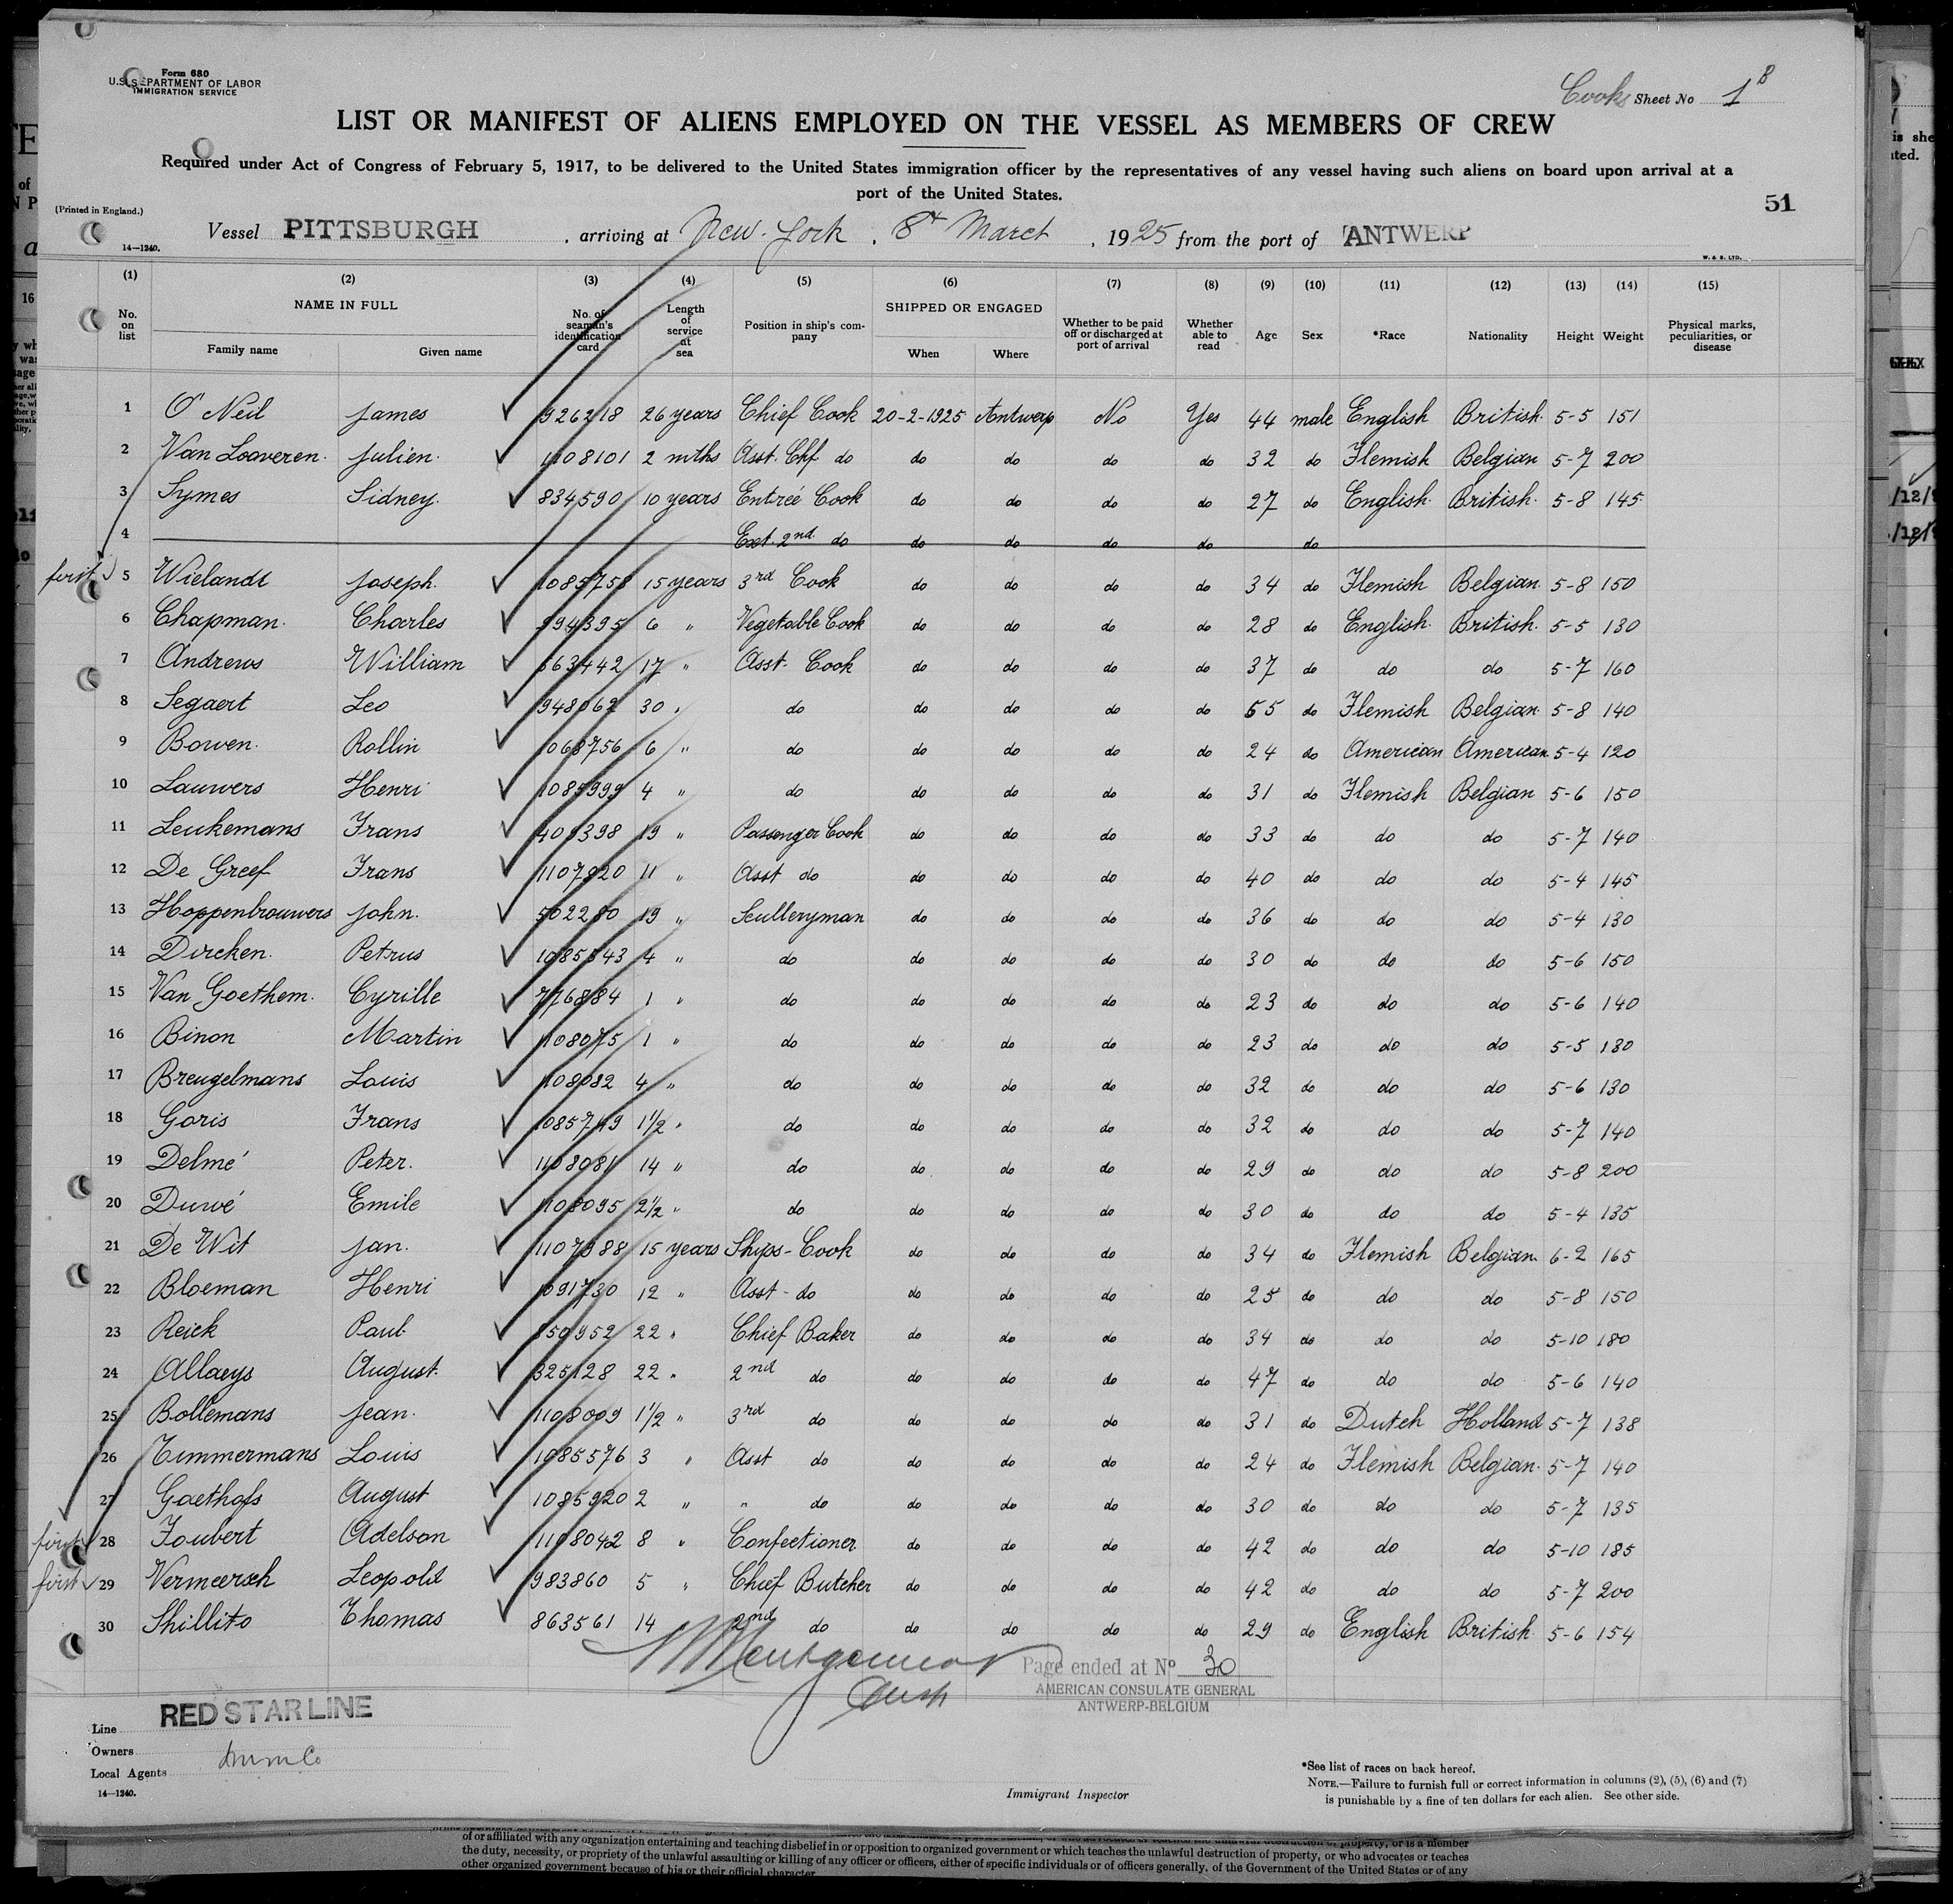 Form 680
U.S. DEPARTMENT OF LABOR
IMMIGRATION SERVICE
Cooks Sheet No 1 B
LIST OR MANIFEST OF ALIENS EMPLOYED ON THE VESSEL AS MEMBERS OF CREW
Required under Act of Congress of February 5, 1917, to be delivered to the United States immigration officer by the representatives of any vessel having such aliens on board upon arrival at a
port of the United States.
51
(Printed in England.)
14—1240.
Vessel PITTSBURGH, arriving at New-York, 8th March, 1925 from the port of ANTWERP
W. & S. LTD.
(1) (2) (3) (4) (5) (6) (7) (8) (9) (10) (11) (12) (13) (14) (15)
No. on list NAME IN FULL Family name Given name No. of seaman's identification card Length of service at sea Position in ship's company SHIPPED OR ENGAGED When Where Whether to be paid off or discharged at port of arrival Whether able to read Age Sex *Race Nationality Height Weight Physical marks, peculiarities, or disease
1 O'Neil James 926218 26 years Chief Cook 20-2-1925 Antwerp No Yes 44 male English British 5-5 151
2 Van Looveren Julien 1108101 2 mths Asst. Chf do do do do do 32 do Flemish Belgian 5-7 200
3 Symes Sidney 834590 10 years Entrée Cook do do do do 27 do English British 5-8 145
4 Ext. 2nd do do do do do do
first 5 Wielandt Joseph 1085758 15 years 3rd Cook do do do do 34 do Flemish Belgian 5-8 150
6 Chapman Charles 994395 6 " Vegetable Cook do do do do 28 do English British 5-5 130
7 Andrews William 563442 17 " Asst. Cook do do do do 37 do do do 5-7 160
8 Segaert Leo 948062 30 " do do do do do 55 do Flemish Belgian 5-8 140
9 Bowen Rollin 1068756 6 " do do do do do 24 do American American 5-4 120
10 Lauwers Henri 1085999 4 " do do do do do 31 do Flemish Belgian 5-6 150
11 Leukemans Frans 409398 19 " Passenger Cook do do do do 33 do do do 5-7 140
12 De Greef Frans 1107920 11 " Asst do do do do do 40 do do do 5-4 145
13 Hoppenbrouwers John 502280 19 " Sculleryman do do do do 36 do do do 5-4 130
14 Dircken Petrus 1085543 4 " do do do do do 30 do do do 5-6 150
15 Van Goethem Cyrille 776884 1 " do do do do do 23 do do do 5-6 140
16 Binon Martin 1108075 1 " do do do do do 23 do do do 5-5 130
17 Breugelmans Louis 1108082 4 " do do do do do 32 do do do 5-6 130
18 Goris Frans 1085749 1½ " do do do do do 32 do do do 5-7 140
19 Delmé Peter 1108081 14 " do do do do do 29 do do do 5-8 200
20 Duwé Emile 1108095 2½ " do do do do do 30 do do do 5-4 135
21 De Wit Jan 1107988 15 years Ships-Cook do do do do 34 do Flemish Belgian 6-2 165
22 Bloeman Henri 1091730 12 " Asst-do do do do do 25 do do do 5-8 150
23 Reick Paul 850952 22 " Chief Baker do do do do 34 do do do 5-10 180
24 Allaeys August 325128 22 " 2nd do do do do do 47 do do do 5-6 140
25 Bollemans Jean 1108009 1½ " 3rd do do do do do 31 do Dutch Holland 5-7 138
26 Timmermans Louis 1085576 3 " Asst do do do do do 24 do Flemish Belgian 5-7 140
27 Goethals August 1085920 2 " " do do do do do 30 do do do 5-7 135
first 28 Joubert Adelson 1108042 8 " Confectioner do do do do 42 do do do 5-10 185
first 29 Vermeersch Leopold 983860 5 " Chief Butcher do do do do 42 do do do 5-7 200
30 Shillito Thomas 863561 14 2nd do do do do do 29 do English British 5-6 154
Page ended at No 30
AMERICAN CONSULATE GENERAL
ANTWERP-BELGIUM
Line RED STAR LINE
Owners
Local Agents
14—1240.
Immigrant Inspector
*See list of races on back hereof.
NOTE.—Failure to furnish full or correct information in columns (2), (5), (6) and (7)
is punishable by a fine of ten dollars for each alien. See other side.
of or affiliated with any organization entertaining and teaching disbelief in or opposition to organized government or which teaches the unlawful destruction of property, or is a member
the duty, necessity, or propriety of the unlawful assaulting or killing of any officer or officers, either of specific individuals or of officers generally, of the Government of the United States or of any
other organized government because of his or their official character